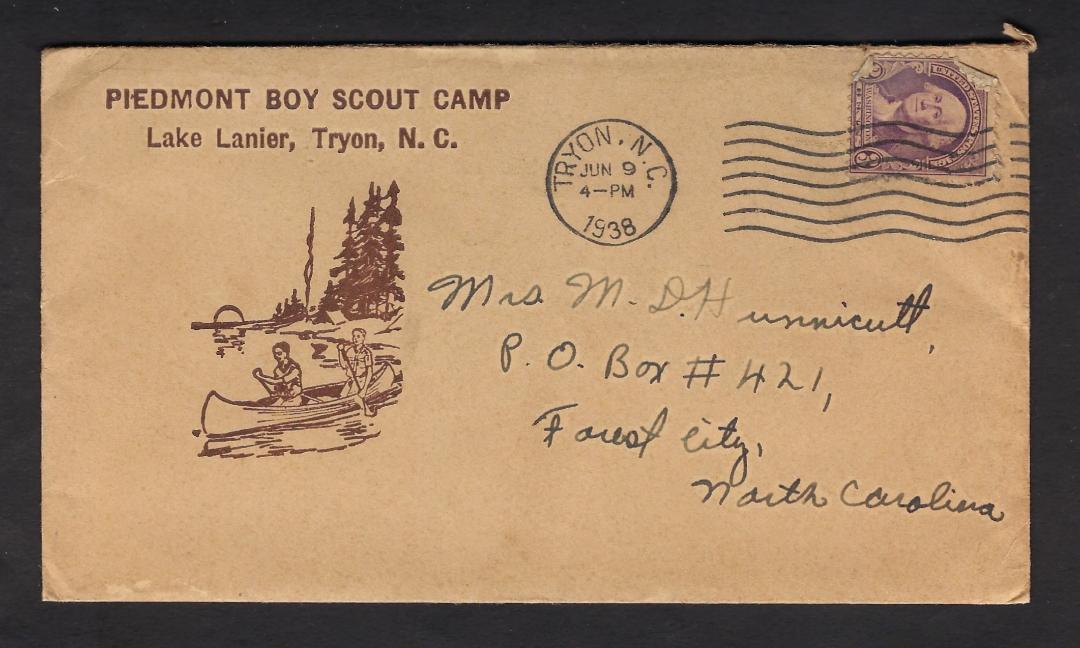 PIEDMONT BOY SCOUT CAMP
Lake Lanier, Tryon, N. C.
TRYON, N.C.
JUN 9
4-PM
1938
UNITED STATES POSTAGE
WASHINGTON
3
3
Mrs. M. D. Hunnicutt,
P. O. Box # 421,
Forest City,
North Carolina